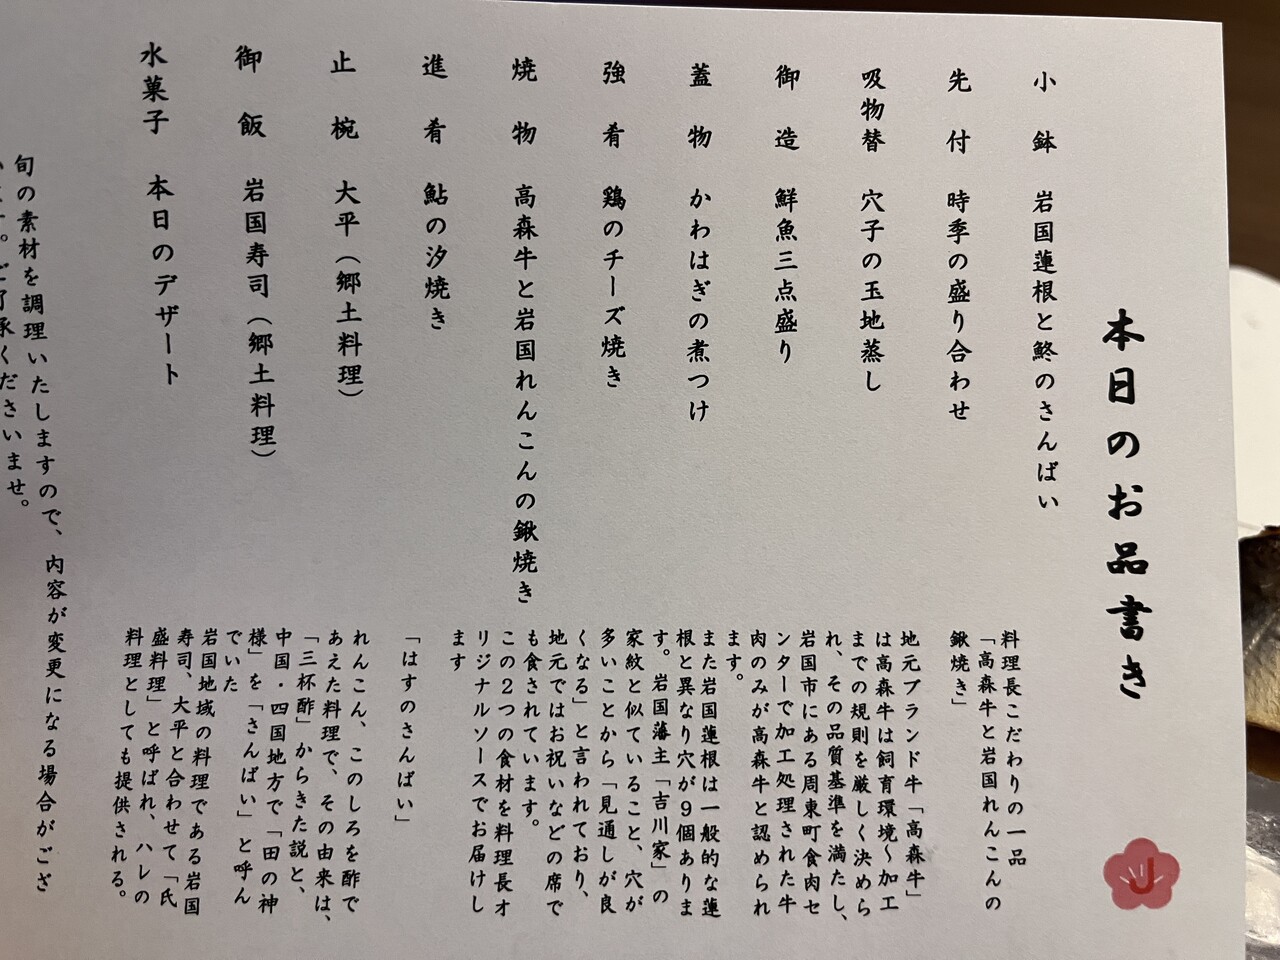 本日のお品書き
小鉢 岩国蓮根と鮗のさんばい
先付 時季の盛り合わせ
吸物替 穴子の玉地蒸し
御造 鮮魚三点盛り
蓋物 かわはぎの煮つけ
強肴 鶏のチーズ焼き
焼物 高森牛と岩国れんこんの鍬焼き
進肴 鮎の汐焼き
止椀 大平（郷土料理）
御飯 岩国寿司（郷土料理）
水菓子 本日のデザート
料理長こだわりの一品
「高森牛と岩国れんこんの
鍬焼き」
地元ブランド牛「高森牛」
は高森牛は飼育環境～加工
までの規則を厳しく決めら
れ、その品質基準を満たし、
岩国市にある周東町食肉セ
ンターで加工処理された牛
肉のみが高森牛と認められ
ます。
また岩国蓮根は一般的な蓮
根と異なり穴が9個ありま
す。岩国藩主「吉川家」の
家紋と似ていること、穴が
多いことから「見通しが良
くなる」と言われており、
地元ではお祝いなどの席で
も食されています。
この2つの食材を料理長オ
リジナルソースでお届けし
ます
「はすのさんばい」
れんこん、このしろを酢で
あえた料理で、その由来は、
「三杯酢」からきた説と、
中国・四国地方で「田の神
様」を「さんばい」と呼ん
でいた
岩国地域の料理である岩国
寿司、大平と合わせて「氏
盛料理」と呼ばれ、ハレの
料理としても提供される。
旬の素材を調理いたしますので、内容が変更になる場合がござ
います。ご了承くださいませ。
J